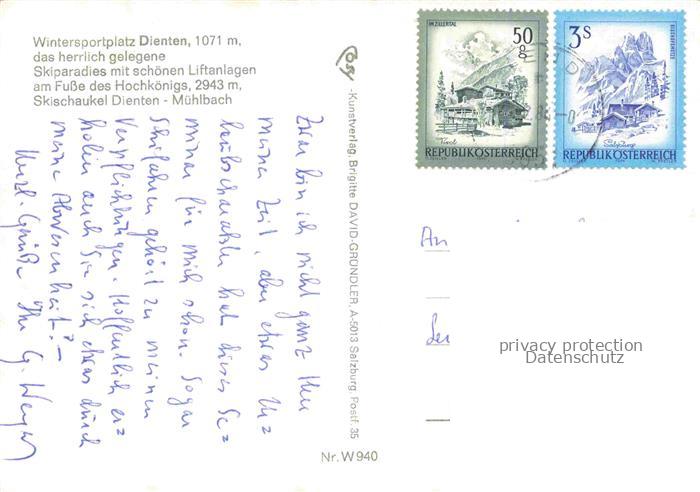 Wintersportplatz Dienten, 1071 m,
das herrlich gelegene
Skiparadies mit schönen Liftanlagen
am Fuße des Hochkönigs, 2943 m,
Skischaukel Dienten - Mühlbach
Zwar bin ich nicht ganz Herr
meiner Zeit, aber etwas Ur=
laubscharakter hat dieses Se=
minar für mich schon. Sogar
Schifahren gehört zu meinen
Verpflichtungen. Hoffentlich er=
holen auch Sie sich etwas durch
meine Abwesenheit? -
Herzl. Grüße Ihr G.
Cosy
-Kunstverlag, Brigitte DAVID-GRÜNDLER, A-5013 Salzburg, Postf. 35
Nr. W 940
IM ZILLERTAL
50 g
Tirol
REPUBLIK ÖSTERREICH
3 S
BISCHOFSMÜTZE
Salzburg
REPUBLIK ÖSTERREICH
An
privacy protection
Datenschutz